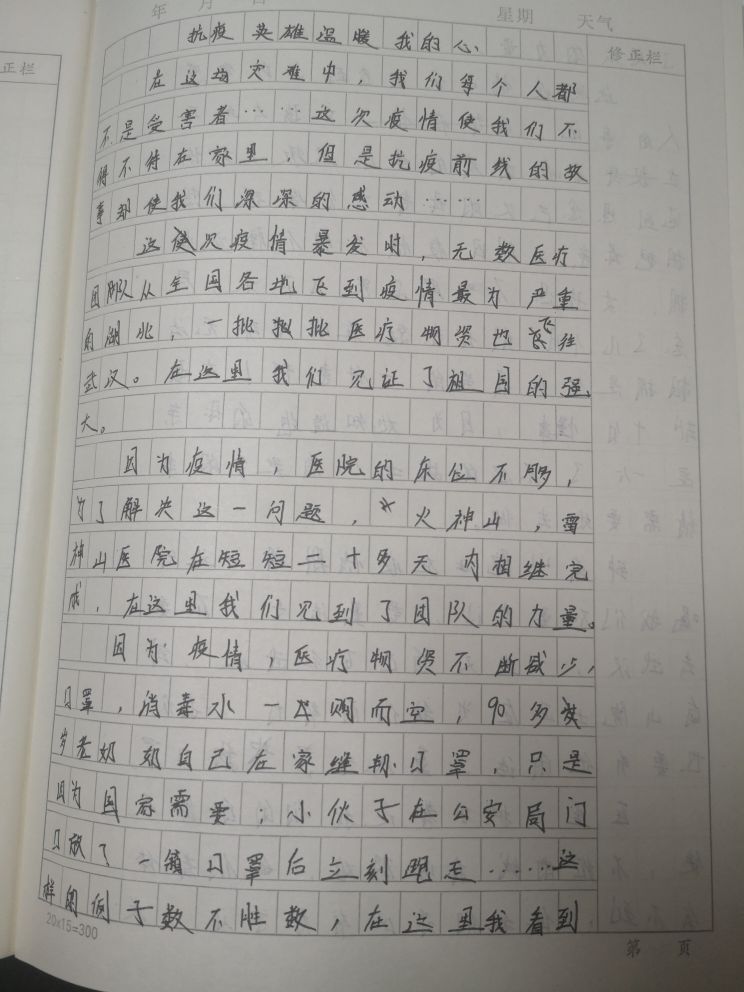 年 月 日 星期 天气
正栏
修正栏
抗疫英雄温暖我的心
在这场灾难中，我们每个人都
不是受害者……这次疫情使我们不
得不待在家里，但是抗疫前线的故
事却使我们深深的感动……
这次疫情暴发时，无数医疗
团队从全国各地飞到疫情最为严重
的湖北，一批批医疗物资也飞往
武汉。在这里我们见证了祖国的强
大。
因为疫情，医院的床位不够，
为了解决这一问题，火神山，雷
神山医院在短短二十多天内相继完
成，在这里我们见到了团队的力量。
因为疫情，医疗物资不断减少，
口罩，消毒水一购而空，90多
岁老奶奶自己在家缝制口罩，只是
因为国家需要；小伙子在公安局门
口放了一箱口罩后立刻跑走……这
样的例子数不胜数，在这里我看到
20×15=300
第 页